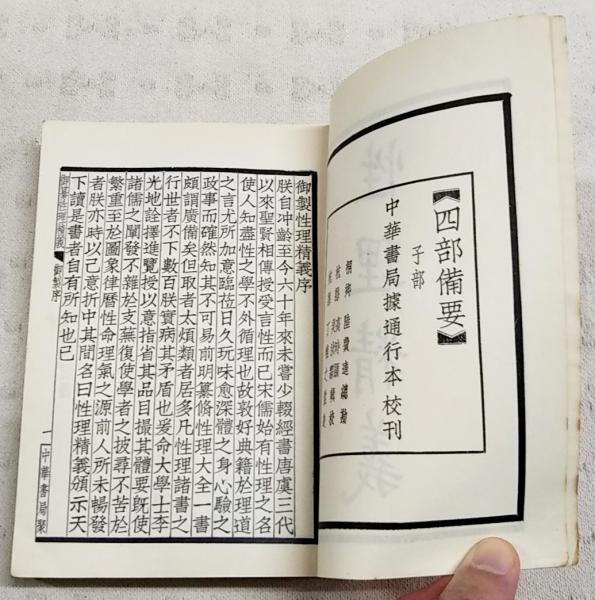 《四部備要》
子部
中華書局據通行本校刊
桐鄉 陸費逵總勘
杭縣 高時顯 吳汝霖 輯校
杭縣 丁輔之監造
御製性理精義序
朕自冲齡至今六十年來未嘗少輟經書唐虞三代
以來聖賢相傳授受言性而已宋儒始有性理之名
使人知盡性之學不外循理也故敦好典籍於理道
之言尤所加意臨莅日久玩味愈深體之身心驗之
政事而確然知其不可易前明纂脩性理大全一書
頗謂廣備矣但取者太煩類者居多凡性理諸書之
行世者不下數百朕實病其矛盾也爰命大學士李
光地詮擇進覽授以意指省其品目撮其體要旣使
諸儒之闡發不雜於支蕪復使學者之披尋不苦於
繁重至於圖象律曆性命理氣之源前人所未暢發
者朕亦時以己意折中其間名曰性理精義頒示天
下讀是書者自有所知也已
御纂性理精義 御製序 一 中華書局聚